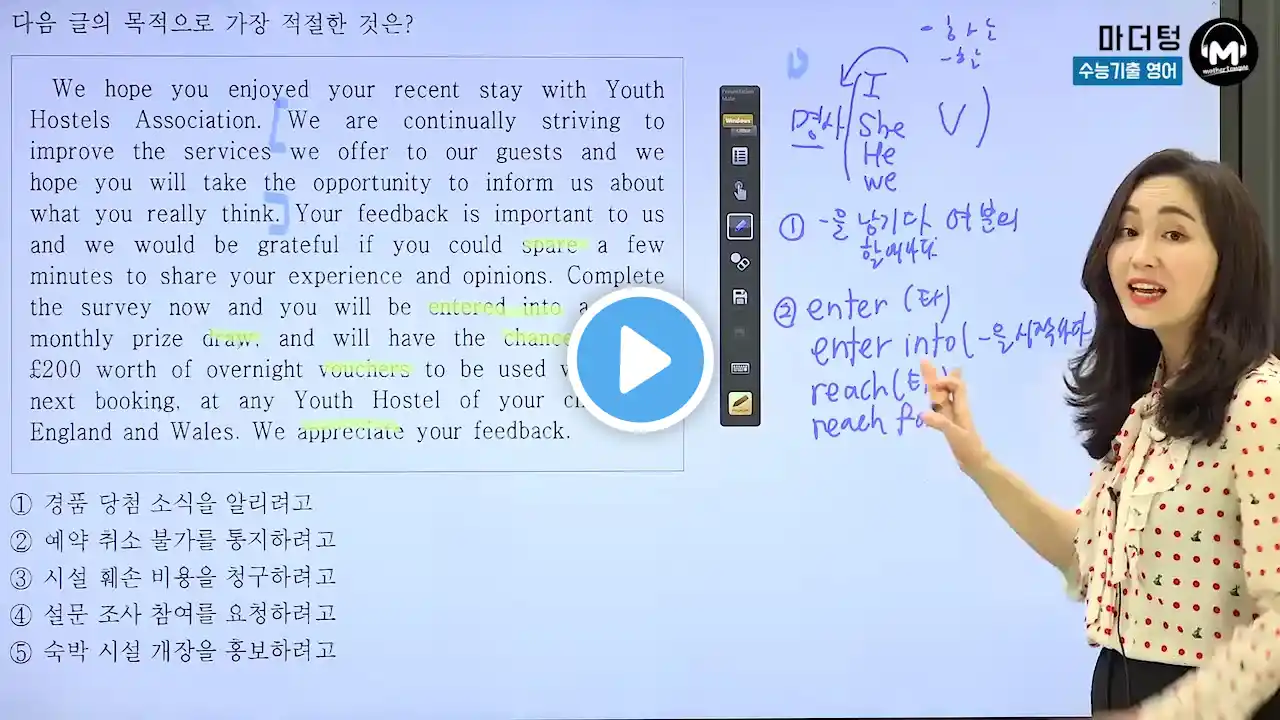 다음 글의 목적으로 가장 적절한 것은?
We hope you your with Youth
we are continually striving to
the services we offer to our guests and we
hope you will take the opportunity to inform us about
what you really think. Your feedback is important to us
and we would be grateful if you could spare a few
minutes to share your experience and opinions. Complete
survey now and you will be
monthly prize draw and have the chance
£200 worth of overnight vouchers to be used
next booking, at any Youth Hostel of your
England or Wales. We appreciate your feedback.
① 경품 당첨 소식을 알리려고
② 예약 취소 불가를 통지하려고
③ 시설 훼손 비용을 청구하려고
④ 설문 조사 참여를 요청하려고
⑤ 숙박 시설 개장을 홍보하려고
Presentation
Windows
-하는
-한
명사
I
She
He
we
V)
① -을 남기다 여분의
할애하다
② enter (타)
enter into (-을 시작하다
reach (타)
reach
마더텅
수능기출 영어
M
mothertongue